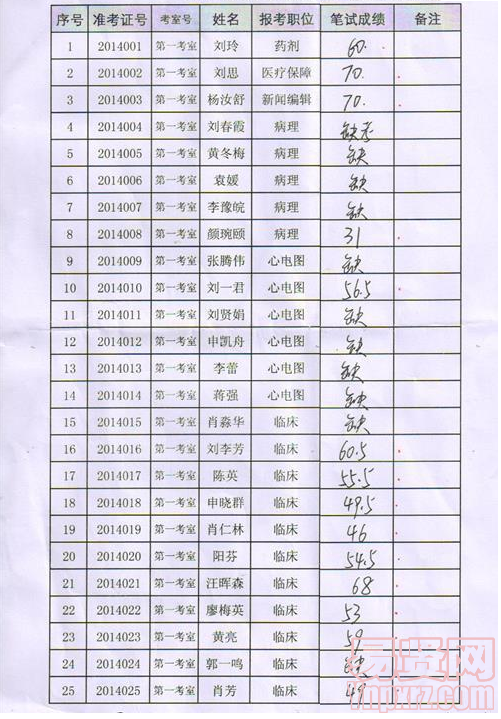 序号 准考证号 考室号 姓名 报考职位 笔试成绩 备注
1 2014001 第一考室 刘玲 药剂 60.
2 2014002 第一考室 刘思 医疗保障 70.
3 2014003 第一考室 杨汝舒 新闻编辑 70.
4 2014004 第一考室 刘春霞 病理 缺考
5 2014005 第一考室 黄冬梅 病理 缺
6 2014006 第一考室 袁媛 病理 缺
7 2014007 第一考室 李豫皖 病理 缺
8 2014008 第一考室 颜琬颐 病理 31
9 2014009 第一考室 张腾伟 心电图 缺
10 2014010 第一考室 刘一君 心电图 56.5
11 2014011 第一考室 刘贤娟 心电图 缺
12 2014012 第一考室 申凯舟 心电图 缺
13 2014013 第一考室 李蕾 心电图 缺
14 2014014 第一考室 蒋强 心电图 缺
15 2014015 第一考室 肖淼华 临床 缺
16 2014016 第一考室 刘李芳 临床 60.5
17 2014017 第一考室 陈英 临床 55.5
18 2014018 第一考室 申晓群 临床 49.5
19 2014019 第一考室 肖仁林 临床 46
20 2014020 第一考室 阳芬 临床 54.5
21 2014021 第一考室 汪晖森 临床 68
22 2014022 第一考室 廖梅英 临床 53
23 2014023 第一考室 黄亮 临床 59
24 2014024 第一考室 郭一鸣 临床 缺
25 2014025 第一考室 肖芳 临床 49
易贤网